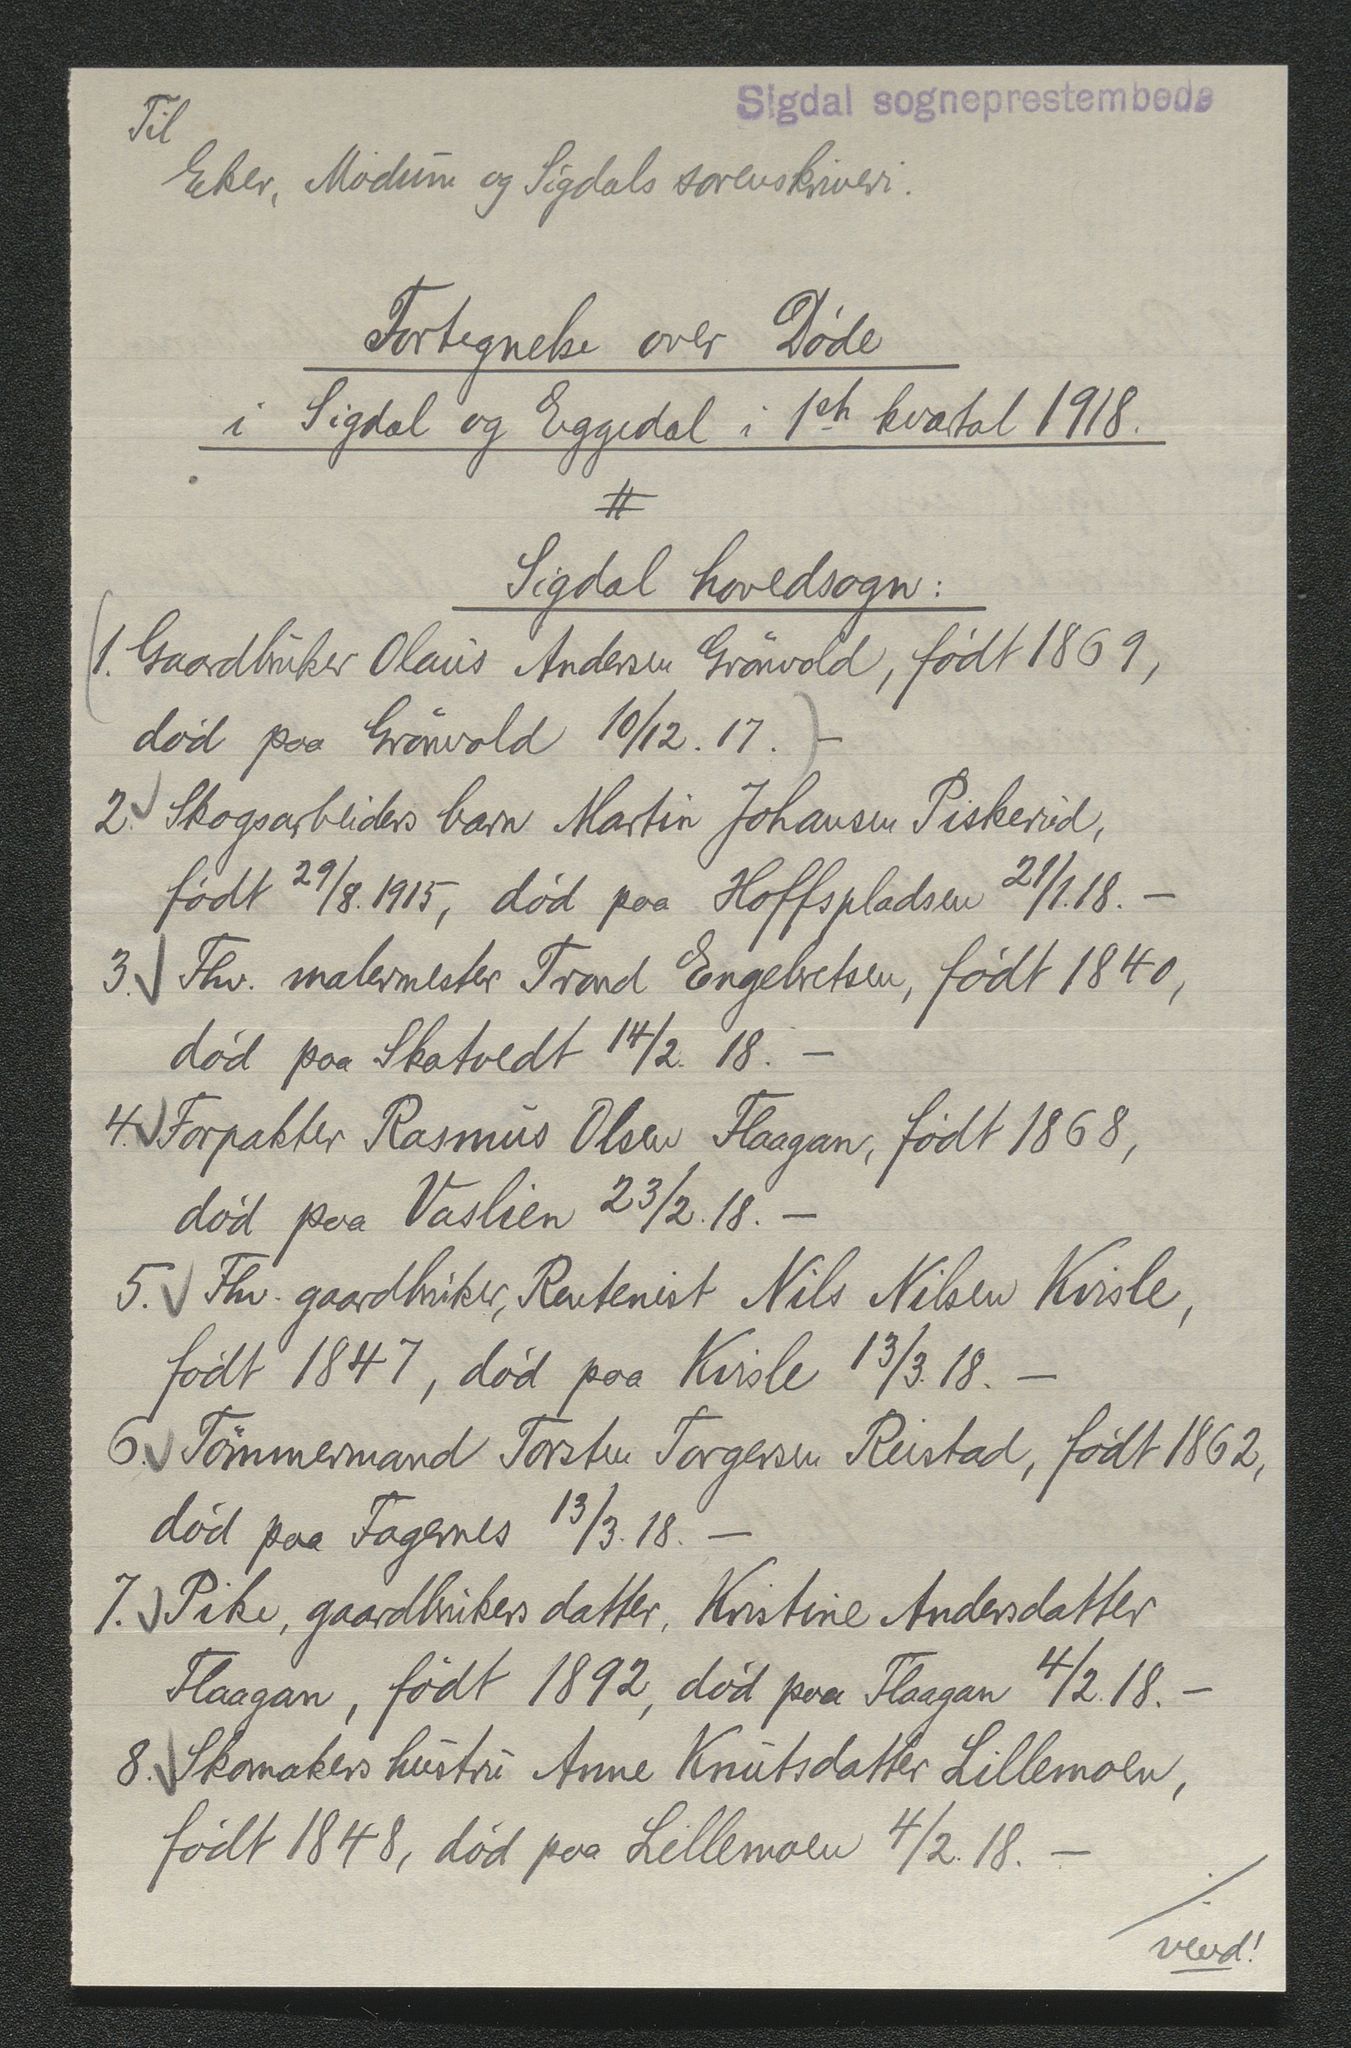 Sigdal sogneprestembede
Til
Eker, Modum og Sigdals sorenskriveri.
Fortegnelse over Døde
i Sigdal og Eggedal i 1ste kvartal 1918.
#
Sigdal hovedsogn:
(1. Gaardbruker Olaus Andersen Grönvold, født 1869,
død paa Grönvold 10/12. 17.) —
2. Skogsarbeiders barn Martin Johansen Piskerud,
født 29/8. 1915, død paa Hoffspladsen 21/1. 18. —
3. Fhv. malermester Trond Engebretsen, født 1840,
død paa Skatvedt 14/2. 18. —
4. Forpakter Rasmus Olsen Flaagan, født 1868,
død paa Vaslien 23/2. 18. —
5. Fhv. gaardbruker, Rentenist Nils Nilsen Kvisle,
født 1847, død paa Kvisle 13/3. 18. —
6. Tömmermand Torsten Torgersen Reistad, født 1862,
død paa Fagernes 13/3. 18. —
7. Pike, gaardbrukers datter, Kristine Andersdatter
Flaagan, født 1892, død paa Flaagan 4/2. 18. —
8. Skomakers hustru Anne Knutsdatter Lillemoen,
født 1848, død paa Lillemoen 4/2. 18. —
vend!